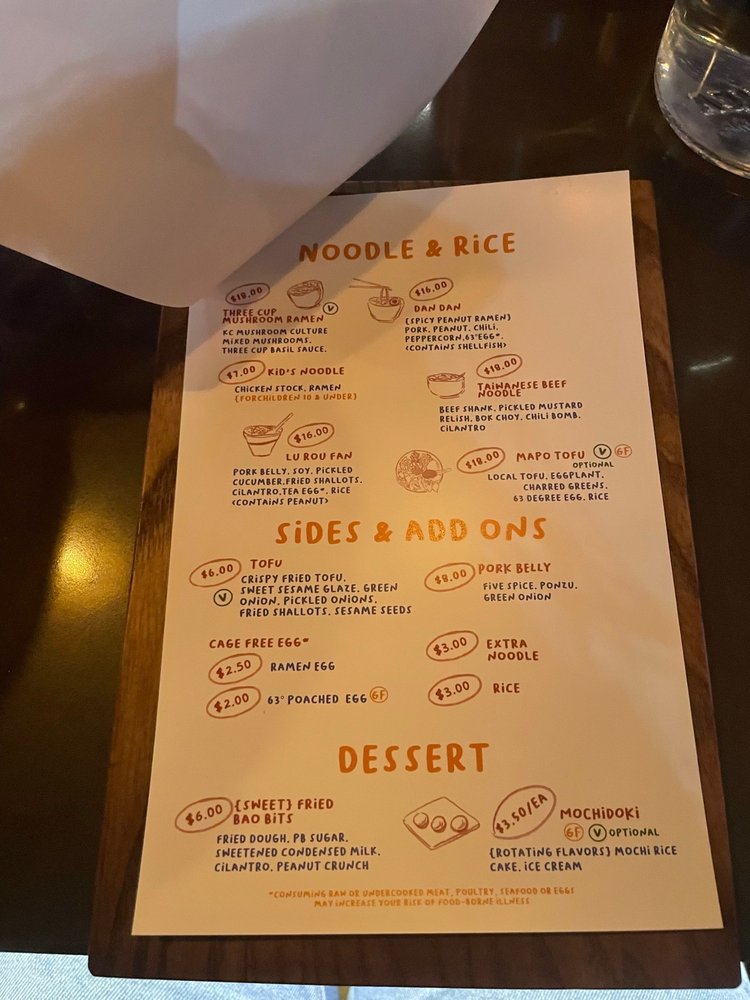 NOODLE & RiCE
$18.00
THREE CUP
MUSHROOM RAMEN V
KC MUSHROOM CULTURE
MiXED MUSHROOMS.
THREE CUP BASiL SAUCE.
$16.00
DAN DAN
{SPiCY PEANUT RAMEN}
PORK, PEANUT, CHiLi,
PEPPERCORN,63°EGG*.
<CONTAiNS SHELLFiSH>
$7.00 KiD'S NOODLE
CHiCKEN STOCK, RAMEN
{FORCHiLDREN 10 & UNDER}
$18.00
TAiWANESE BEEF
NOODLE
BEEF SHANK, PiCKLED MUSTARD
RELiSH, BOK CHOY, CHiLi BOMB,
CiLANTRO
$16.00
LU ROU FAN
PORK BELLY, SOY, PiCKLED
CUCUMBER,FRiED SHALLOTS,
CiLANTRO,TEA EGG*, RiCE
<CONTAiNS PEANUT>
$18.00 MAPO TOFU V GF
OPTiONAL
LOCAL TOFU, EGGPLANT,
CHARRED GREENS,
63 DEGREE EGG, RiCE
SiDES & ADD ONS
$6.00 TOFU
V
CRiSPY FRiED TOFU,
SWEET SESAME GLAZE, GREEN
ONiON, PiCKLED ONiONS,
FRiED SHALLOTS, SESAME SEEDS
$8.00 PORK BELLY
FiVE SPiCE, PONZU,
GREEN ONiON
CAGE FREE EGG*
$2.50 RAMEN EGG
$2.00 63° POACHED EGG GF
$3.00 EXTRA
NOODLE
$3.00 RiCE
DESSERT
$6.00 {SWEET} FRiED
BAO BiTS
FRiED DOUGH, PB SUGAR,
SWEETENED CONDENSED MiLK,
CiLANTRO, PEANUT CRUNCH
$3.50/EA MOCHiDOKi
GF V OPTiONAL
{ROTATiNG FLAVORS} MOCHi RiCE
CAKE, iCE CREAM
*CONSUMiNG RAW OR UNDERCOOKED MEAT, POULTRY, SEAFOOD OR EGGS
MAY iNCREASE YOUR RiSK OF FOOD-BORNE iLLNESS